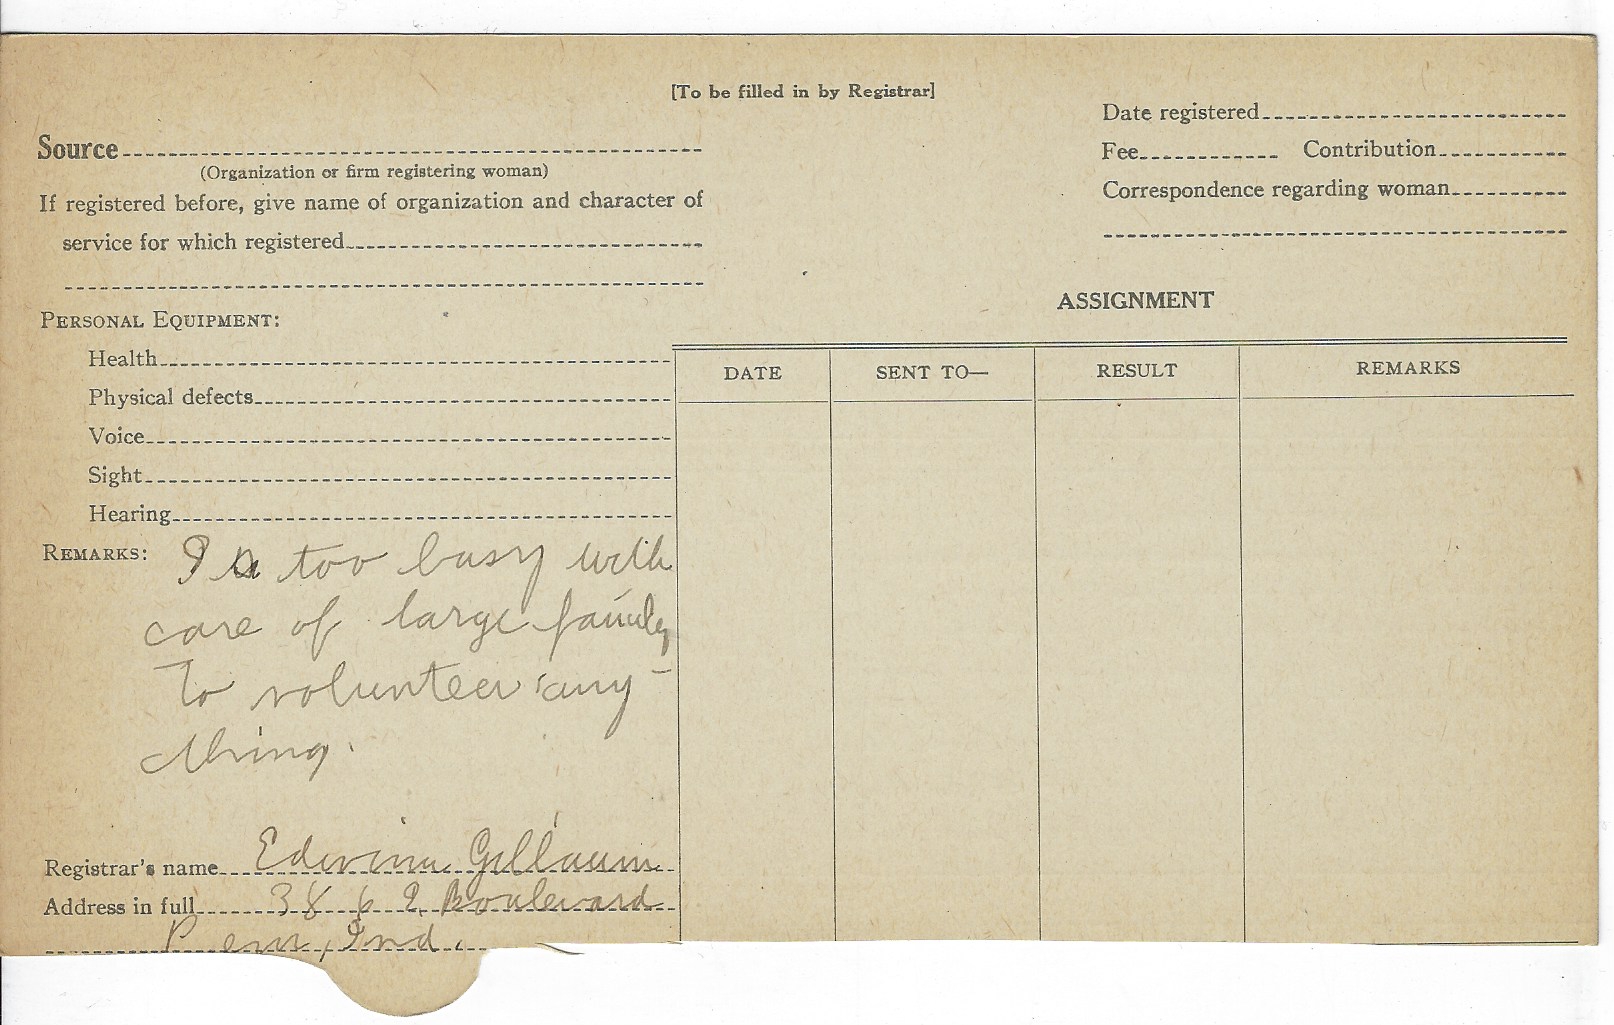 [To be filled in by Registrar]
Source
(Organization or firm registering woman)
If registered before, give name of organization and character of
service for which registered
Date registered
Fee Contribution
Correspondence regarding woman
PERSONAL EQUIPMENT:
Health
Physical defects
Voice
Sight
Hearing
ASSIGNMENT
DATE SENT TO— RESULT REMARKS
REMARKS: too busy with
care of large family
To volunteer any-
thing.
Registrar's name Edwina Gillaum
Address in full 38 6 E Boulevard
Peru, Ind.